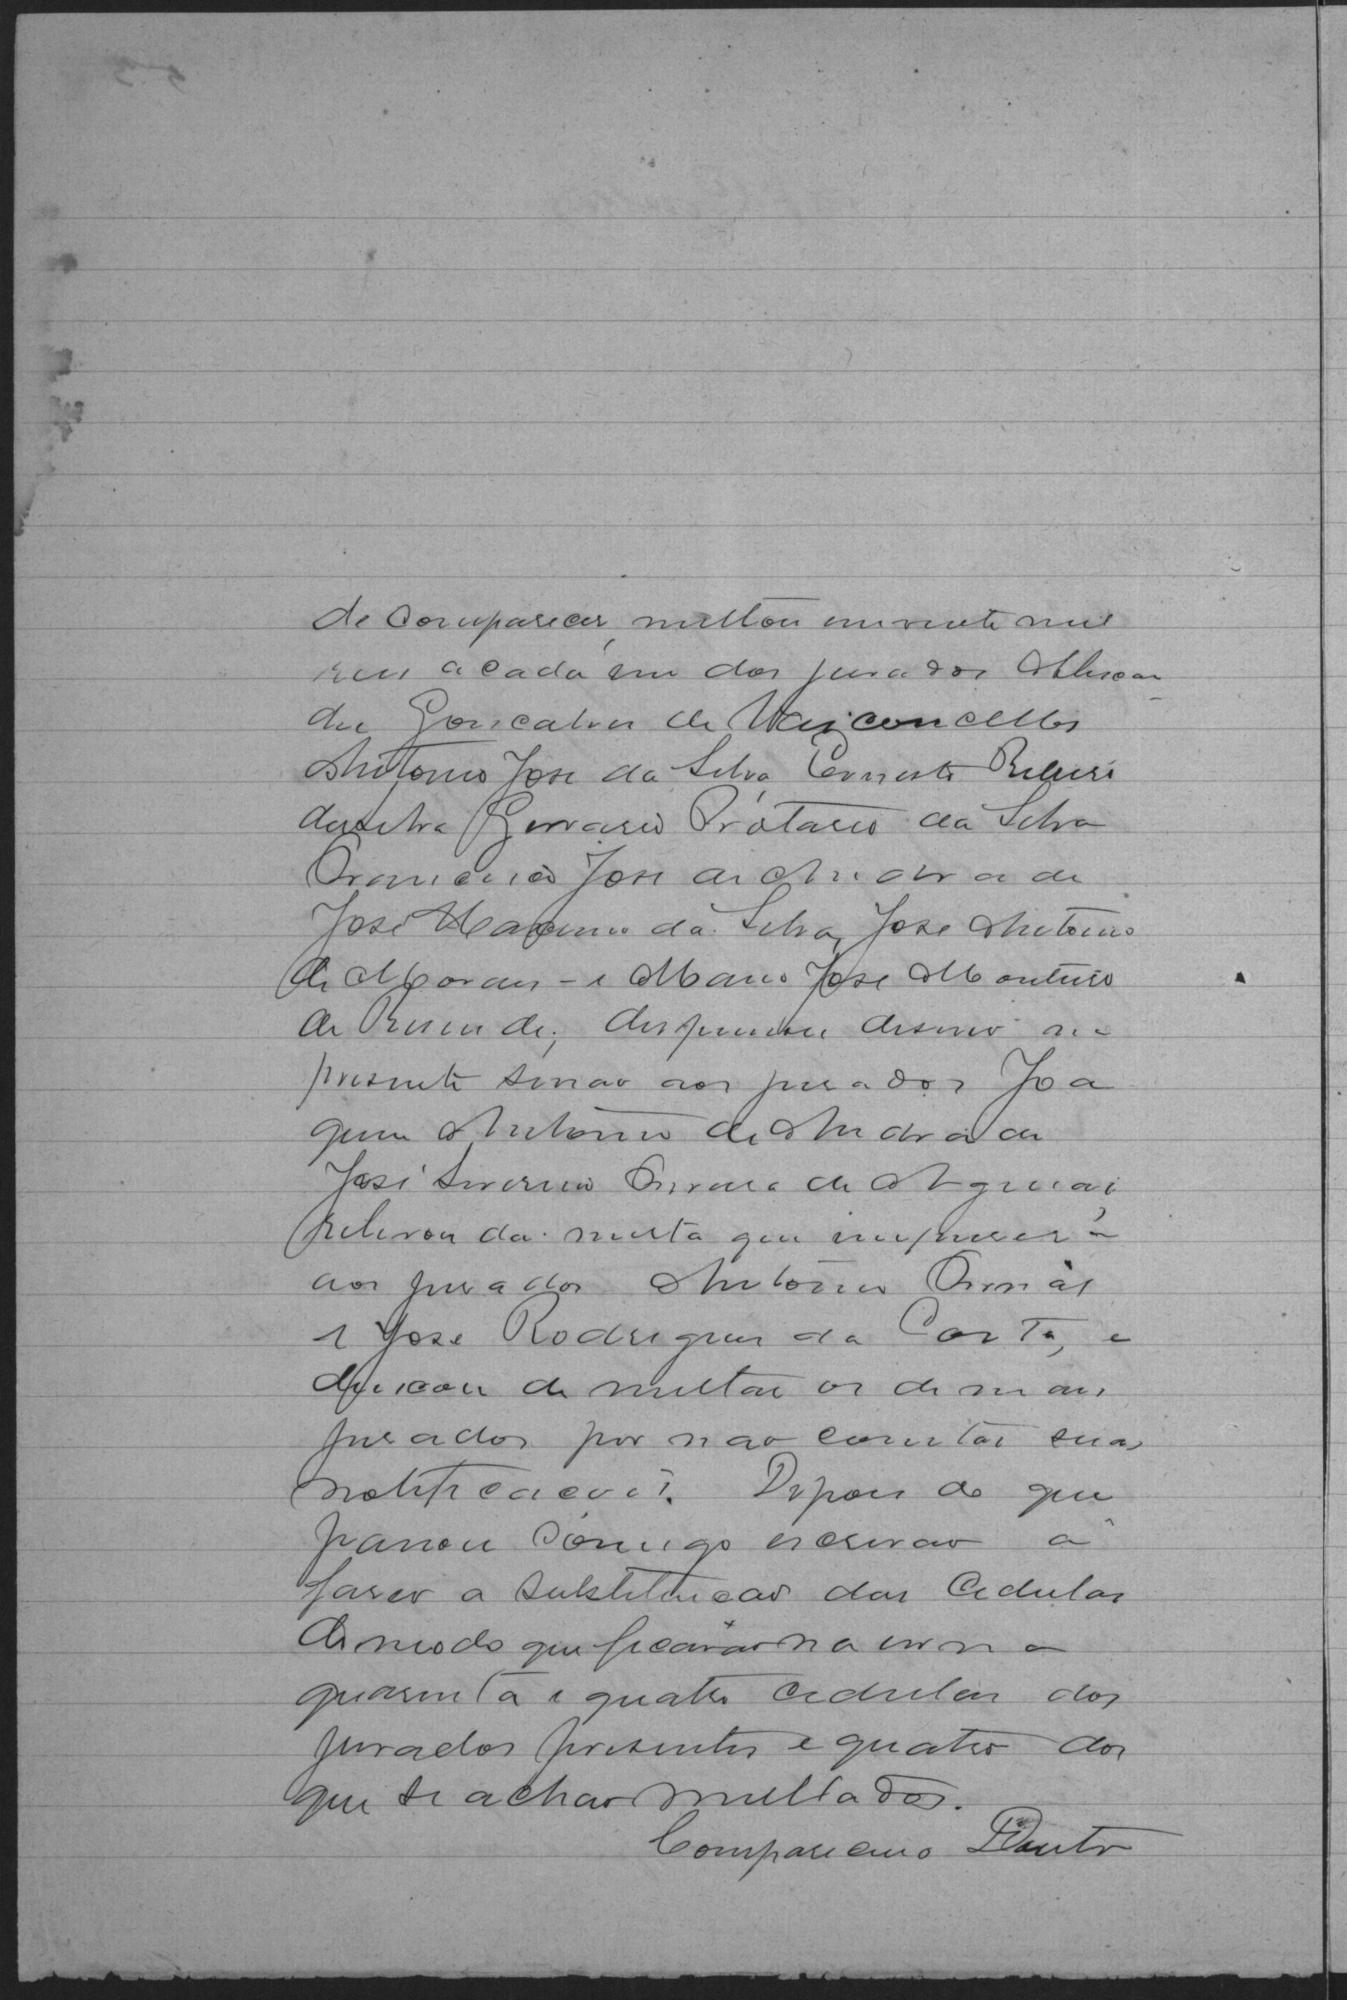 de comparecer, multou em vinte mil
reis a cada um dos jurados Alexan
dre Goncalves de Vasconcellos
Antonio Jose da Silva Ernesto Ribeiro
da Silva Gervasio Protasio da Silva
Francisco Jose de Andrade
José Maximo da Silva, Jose Antonio
de Moraes - e Mario Jose Monteiro
de Resende; dispensou de servir na
presente sessao aos jurados Joa
quim Antonio de Andrade
José Severino de Aguiar
relevou da multa que impuzera
aos jurados Antonio
e Jose Rodrigues da Costa, e
deixou de multar os demais
jurados por nao constar suas
notificacoes. Depois do que
passou comigo escrivao a
faser a substituicao das cedulas
de modo que ficarao na urna
quarenta e quatro cedulas dos
jurados presentes e quatro dos
que se achao multados.
Compareceu Doutor